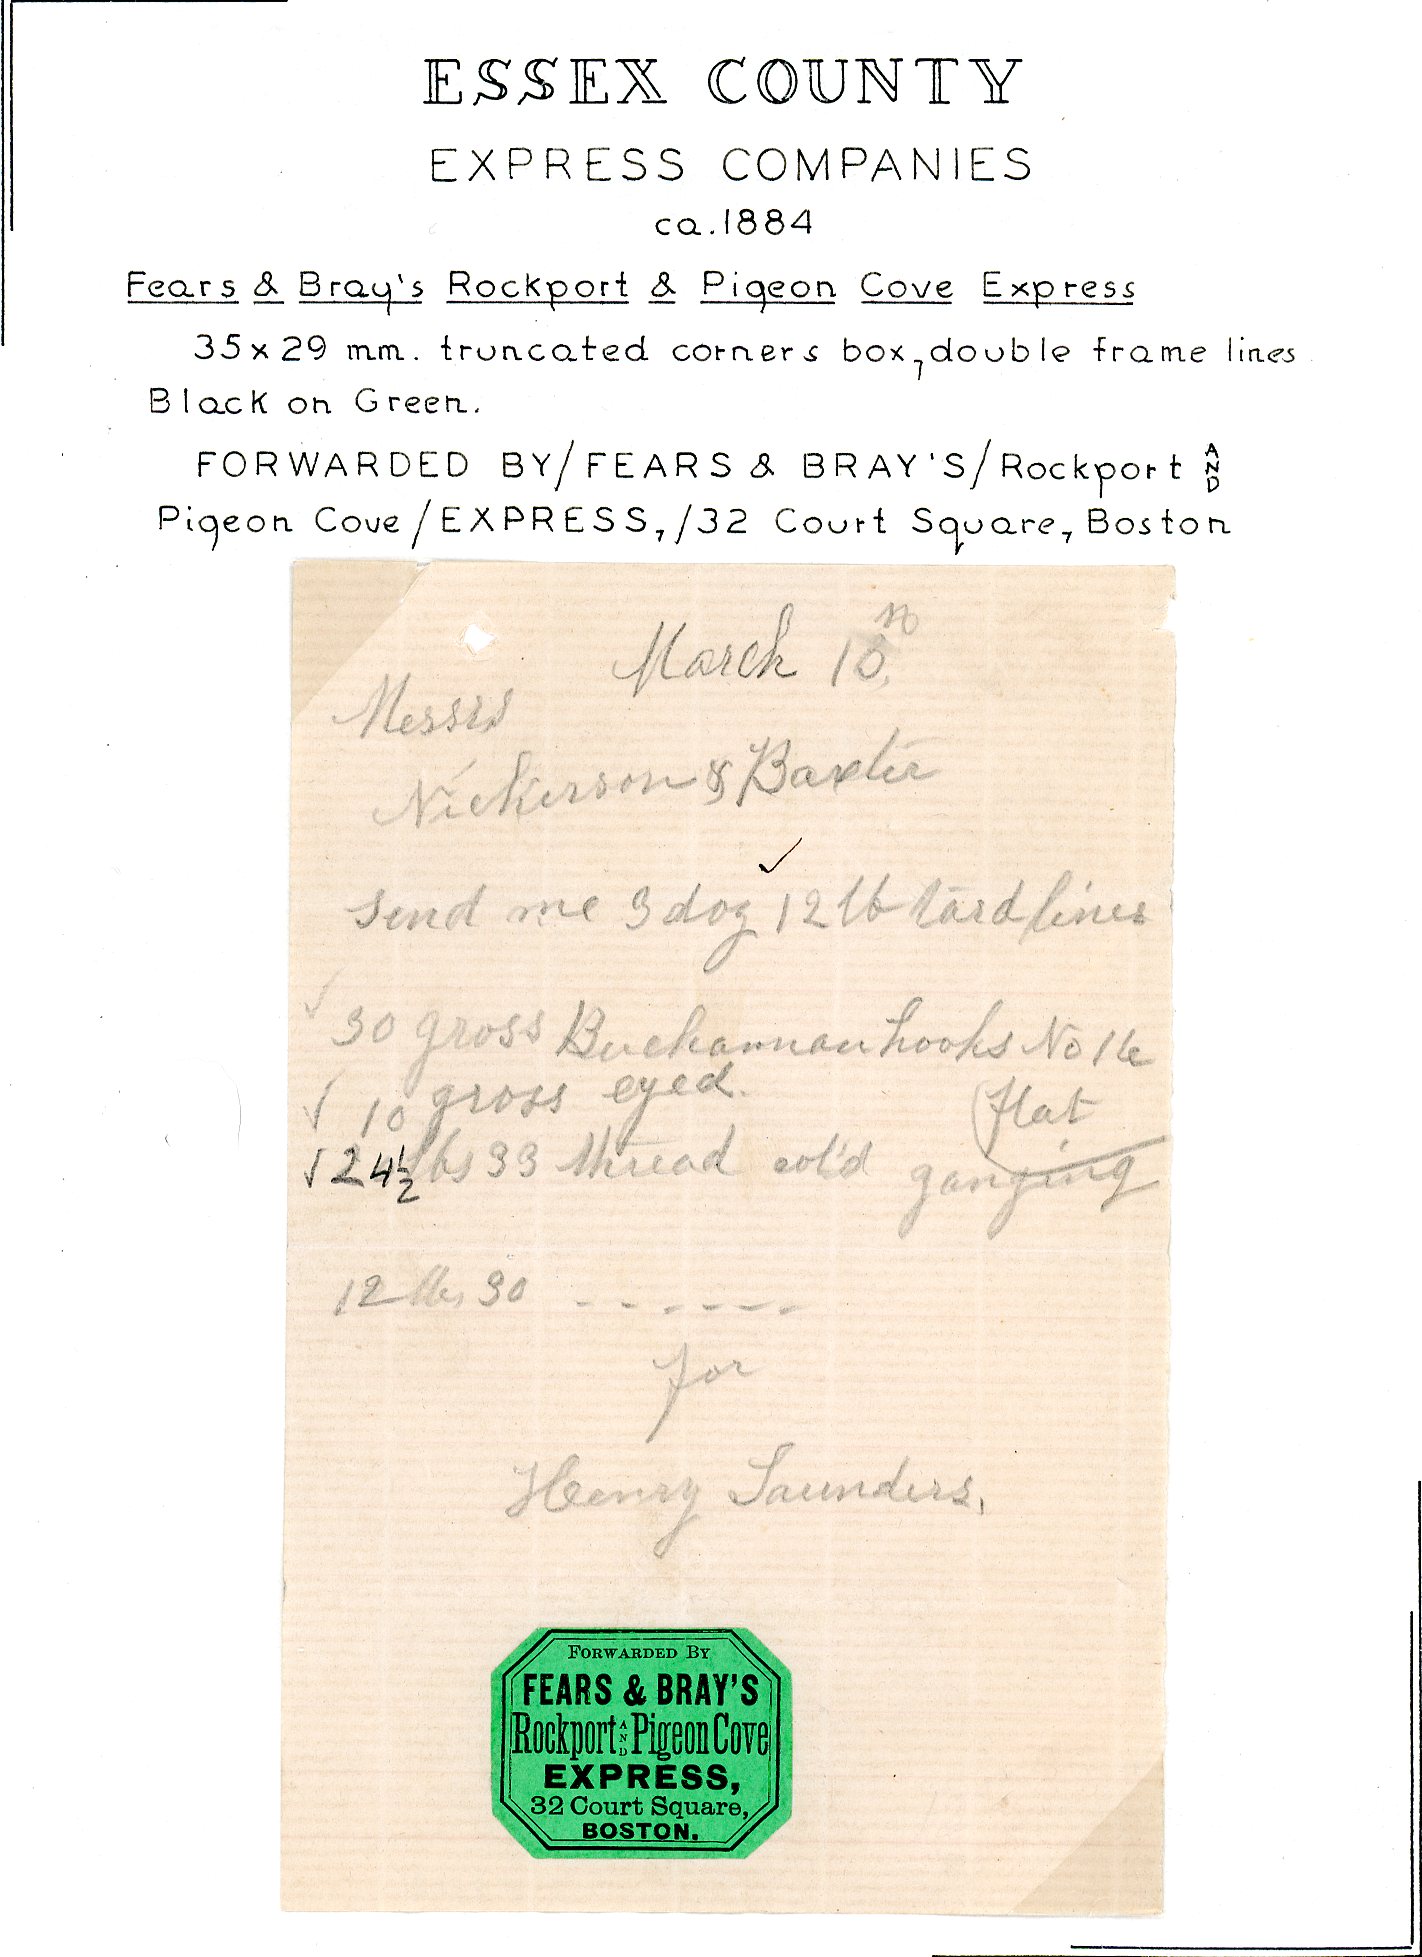 ESSEX COUNTY
EXPRESS COMPANIES
ca.1884
Fears & Bray's Rockport & Pigeon Cove Express
35x29 mm. truncated corners box, double frame lines
Black on Green.
FORWARDED BY/FEARS & BRAY'S/Rockport AND
Pigeon Cove/EXPRESS,/32 Court Square, Boston
March 10
Messrs
Nickerson & Baxter
✓
send me 3 doz 12 lb tard lines
✓ 30 gross Buchannan hooks No 16
✓ 10 gross eyed.
flat
✓ 24½ lbs 33 thread col'd ganging
12 lbs 30 - - - - - -
for
Henry Saunders.
FORWARDED BY
FEARS & BRAY'S
Rockport AND Pigeon Cove
EXPRESS,
32 Court Square,
BOSTON.